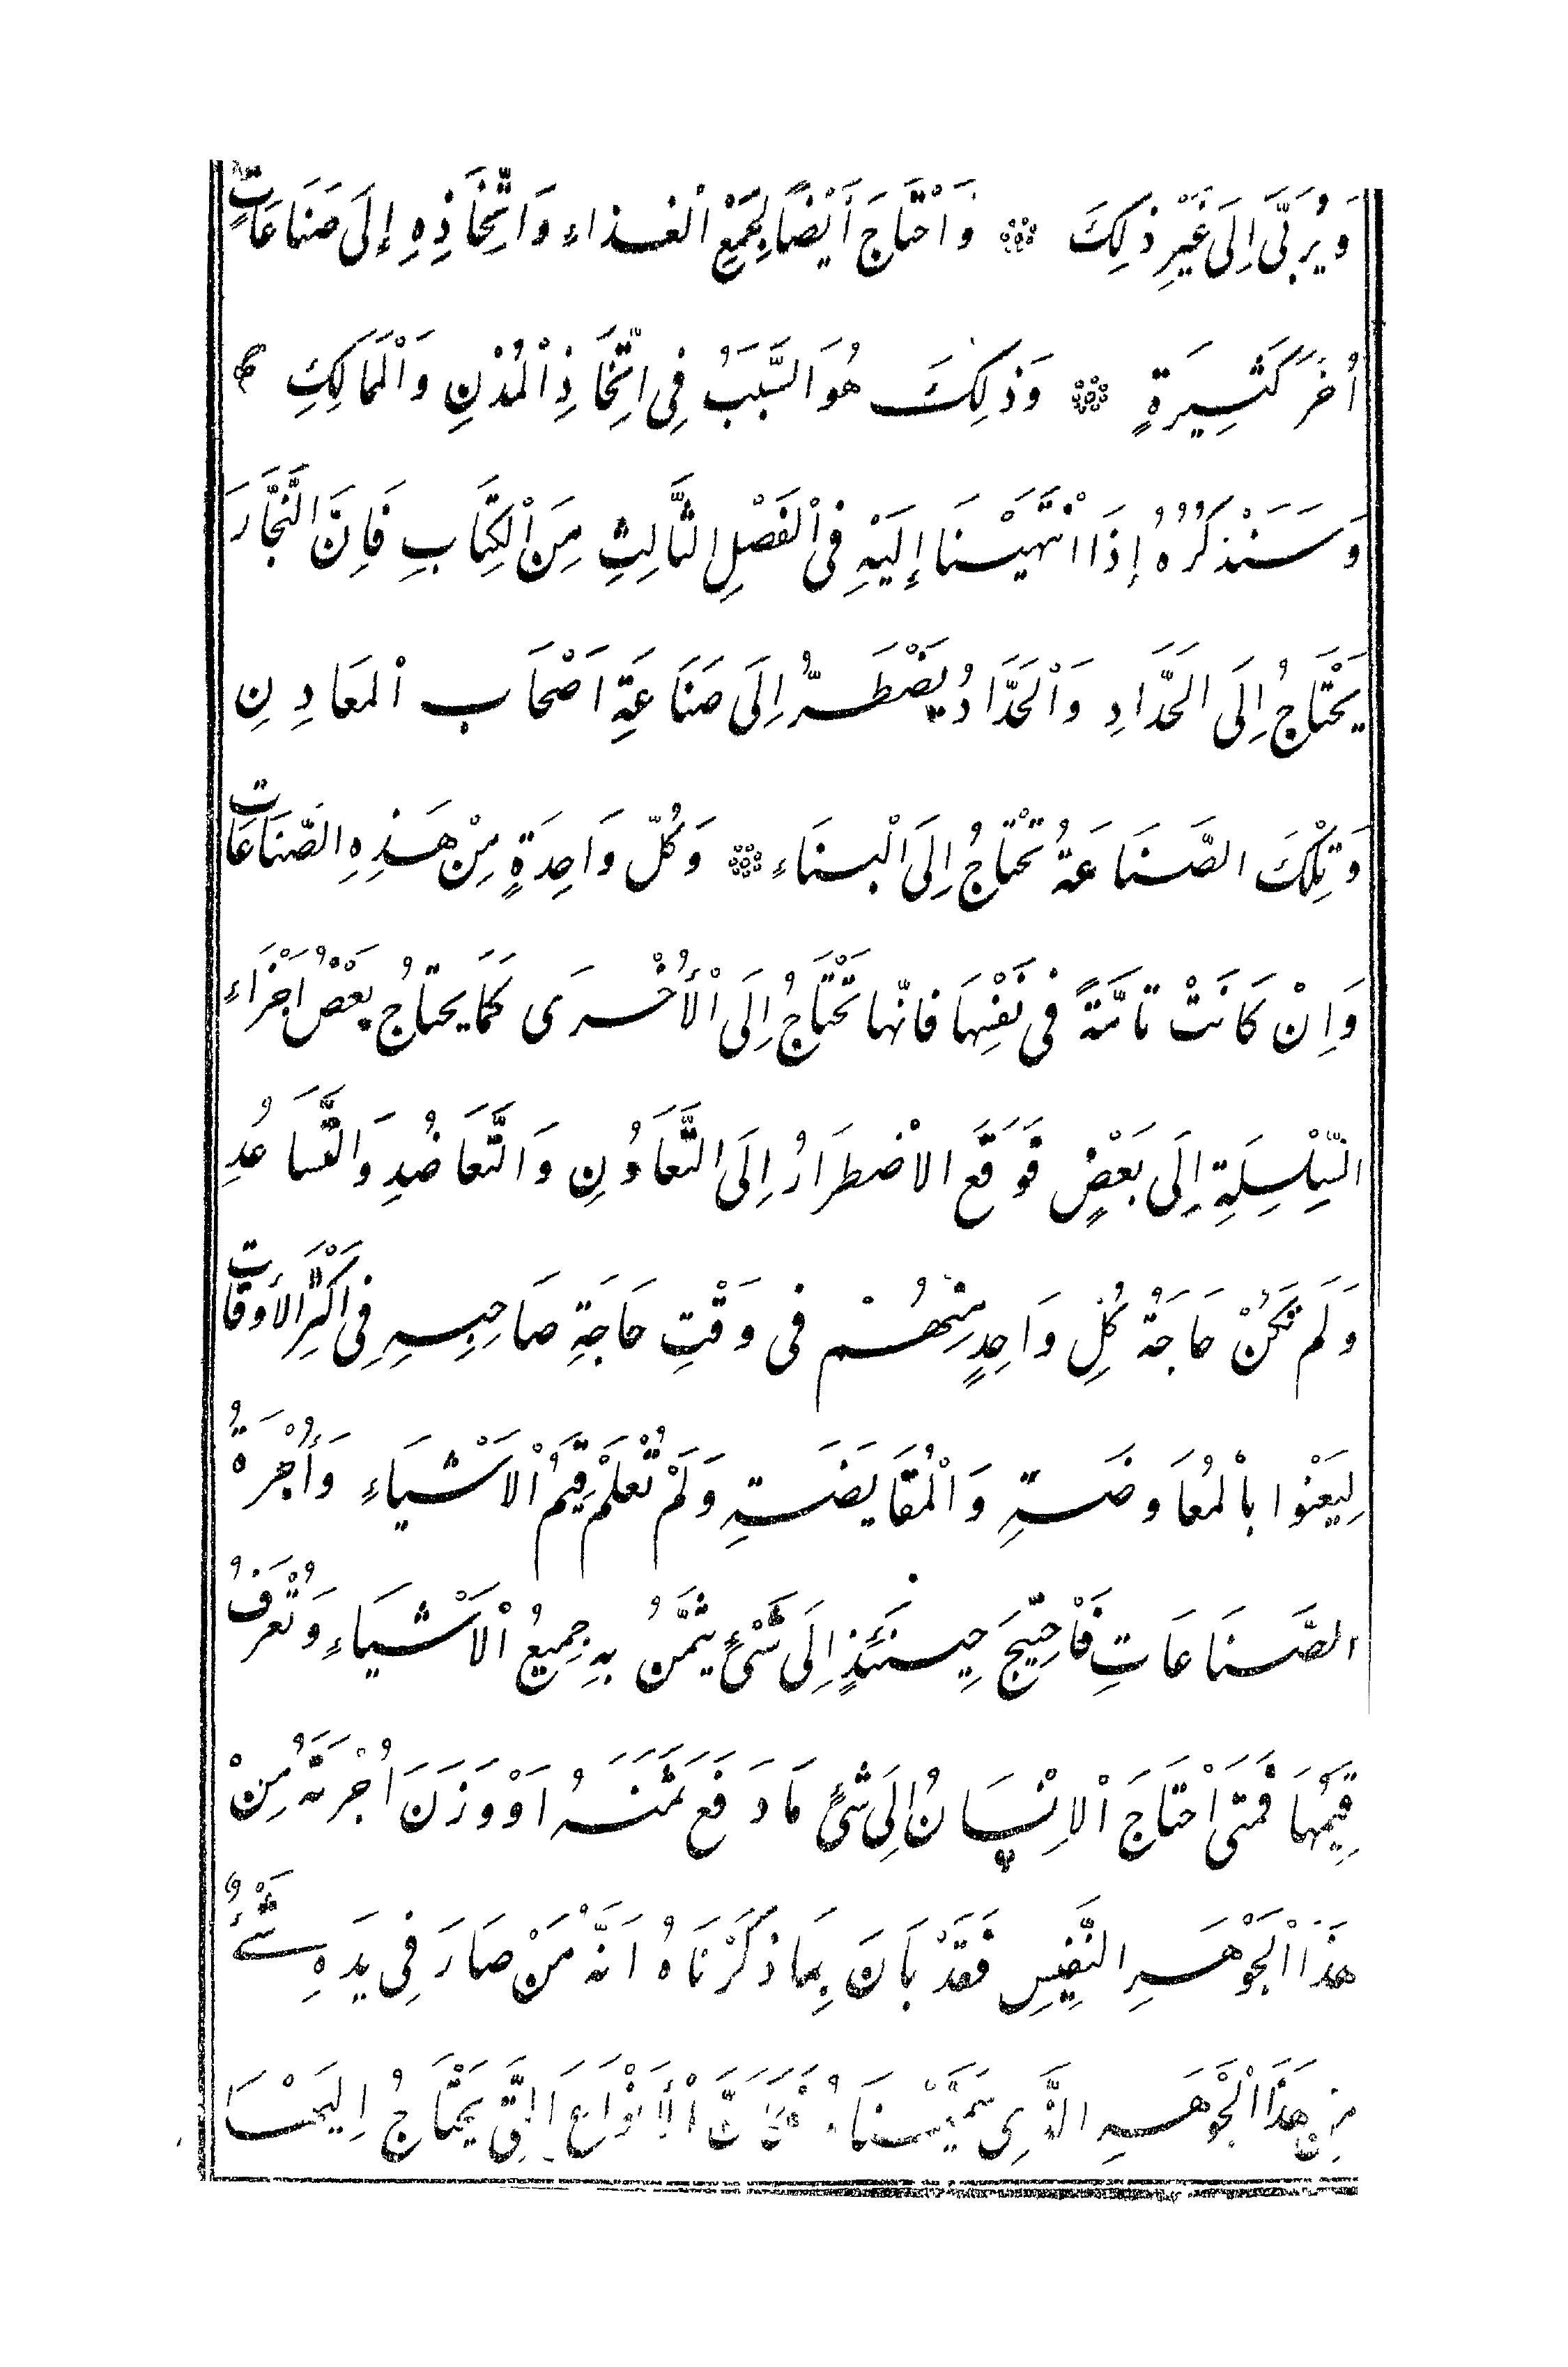 وَيُرَبَّى اِلَى غَيْرِ ذٰلِكَ ۞ وَاحْتَاجَ أَيْضًا لِجَمْعِ الْغذاءِ وَاتِّخَاذِهِ إِلَى صَنَاعَاتٍ
اُخَرَ كَثِيرَةٍ ۞ وَذٰلِكَ هُوَ السَّبَبُ فِى اتِّخَاذِ الْمُدْنِ وَالْمَمَالِكِ
وَسَنَذْكُرُهُ إِذَا انْتَهَيْنَا إِلَيْهِ فِى الْفَصْلِ الثَّالِثِ مِنَ الْكِتَابِ فَاِنَّ النَّجَّارَ
يَحْتَاجُ اِلَى الحَدَّادِ وَالْحَدَّادُ يَضْطَرُّ اِلَى صَنَاعَةِ اَصْحَاب الْمَعَادِنِ
وَتِلْكَ الصَّنَاعَةُ تَحْتَاجُ اِلَى الْبنَاءِ ۞ وَكُلّ وَاحِدَةٍ مِنْ هَذِهِ الصَّنَاعَات
وَاِنْ كَانَتْ تَامَّةً فى نَفْسِهَا فانّها تَحْتَاجُ اِلَى الْأُخْرَى كَمَا يحتاجُ بَعْضُ اَجْزَاءِ
السِّلْسِلَةِ اِلَى بَعْضٍ فَوَقَعَ الاضْطرَارُ اِلَى التَّعَاوُنِ وَالتَّعَاضُدِ وَالتَّسَاعُدِ
وَلَم تَكُنْ حَاجَةُ كُلِّ وَاحِدٍ مِنْهُمْ فى وَقْتِ حَاجَةِ صَاحِبِهِ فِى اَكْثَرِ الأَوقَات
لِيَعْنُوا بالْمُعَاوضَةِ وَالْمُقَايَضَةِ وَلَمْ تُعْلَمْ قِيَمُ الْاَشْيَاءِ وَأُجْرَةُ
الصَّنَاعَاتِ فَاحْتِيجَ حِينَئِذٍ اِلَى شَىْءٍ يُثَمَّنُ بِهِ جمِيعُ الْاَشْيَاءِ وَتُعْرَفُ
قِيَمُهَا فَمَتى احْتَاجَ الْاِنْسَانُ اِلَى شىءٍ مَا دَفَعَ ثَمَنَهُ اَوْ وَزَنَ اُجْرَتَهُ مِنْ
هذَا الْجَوْهَرِ النَّفِيسِ فَقَدْ بَانَ بِمَا ذَكَرْنَاهُ اَنَّهُ مَنْ صَارَ فِى يَدِهِ شَىْءٌ
مِن هَذَا الْجَوْهَرِ الَّذِى سَمَّيْنَاهُ الْأَنْوَاعَ الَّتِى يَحْتَاجُ اِلَيْهَا